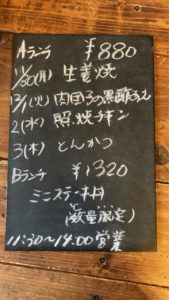 Aランチ ¥880
11/30(月) 生姜焼
12/1(火) 肉団子の黒酢あん
2(水) 照焼チキン
3(木) とんかつ
Bランチ ¥1320
ミニステーキ丼
(数量限定)
11:30〜14:00営業